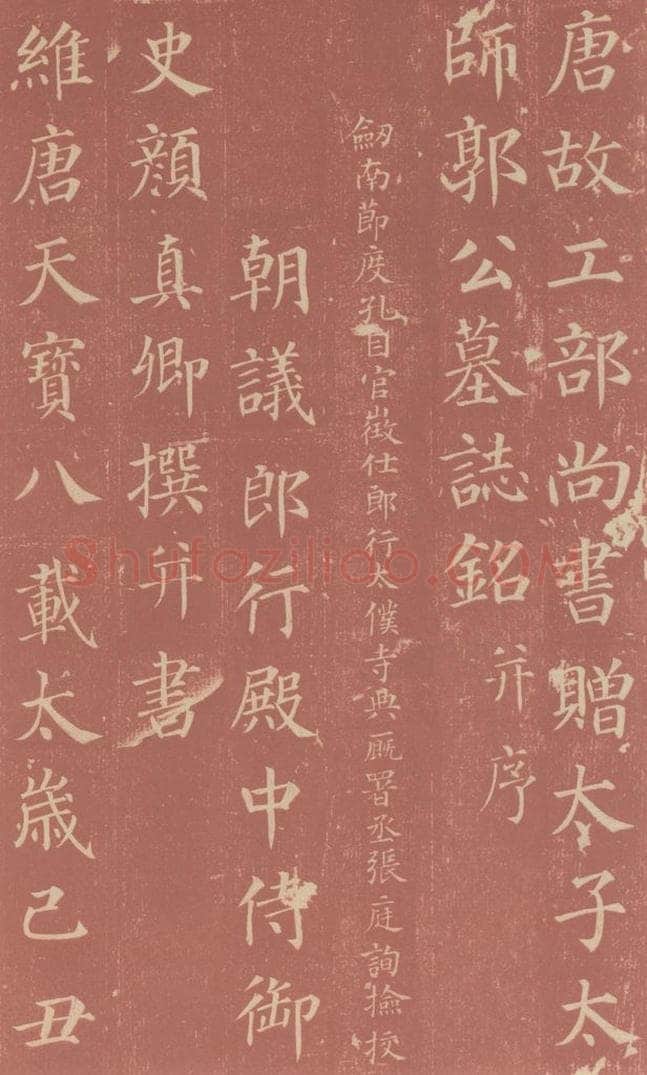 唐故工部尚書贈太子太
師郭公墓誌銘并序
劒南節度孔目官徵仕郎行太僕寺典廐署丞張庭詢撿挍
朝議郎行殿中侍御
史顔真卿撰并書
維唐天寶八載太歲己丑
Shufaziliao.COM